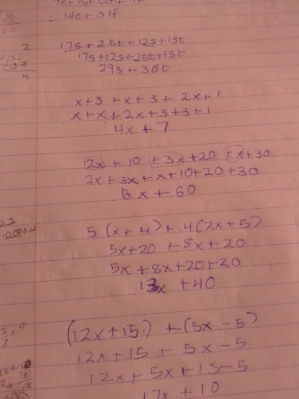 = 14e + 31f
17s + 25t + 12s + 13t
17s + 12s + 25t + 13t
29s + 38t
x + 3 + x + 3 + 2x + 1
x + x + 2x + 3 + 3 + 1
4x + 7
2x + 10 + 3x + 20 + x + 30
2x + 3x + x + 10 + 20 + 30
6x + 60
5 (x + 4) + 4(2x + 5)
5x + 20 + 8x + 20
5x + 8x + 20 + 20
13x + 40
(12x + 15) + (5x - 5)
12x + 15 + 5x - 5
12x + 5x + 15 - 5
17x + 10